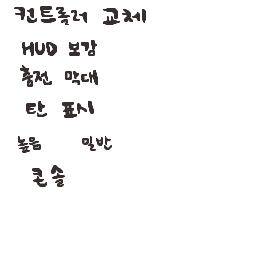 컨트롤러 교체
HUD 보감
충전 막대
탄 표시
높음 일반
콘솔